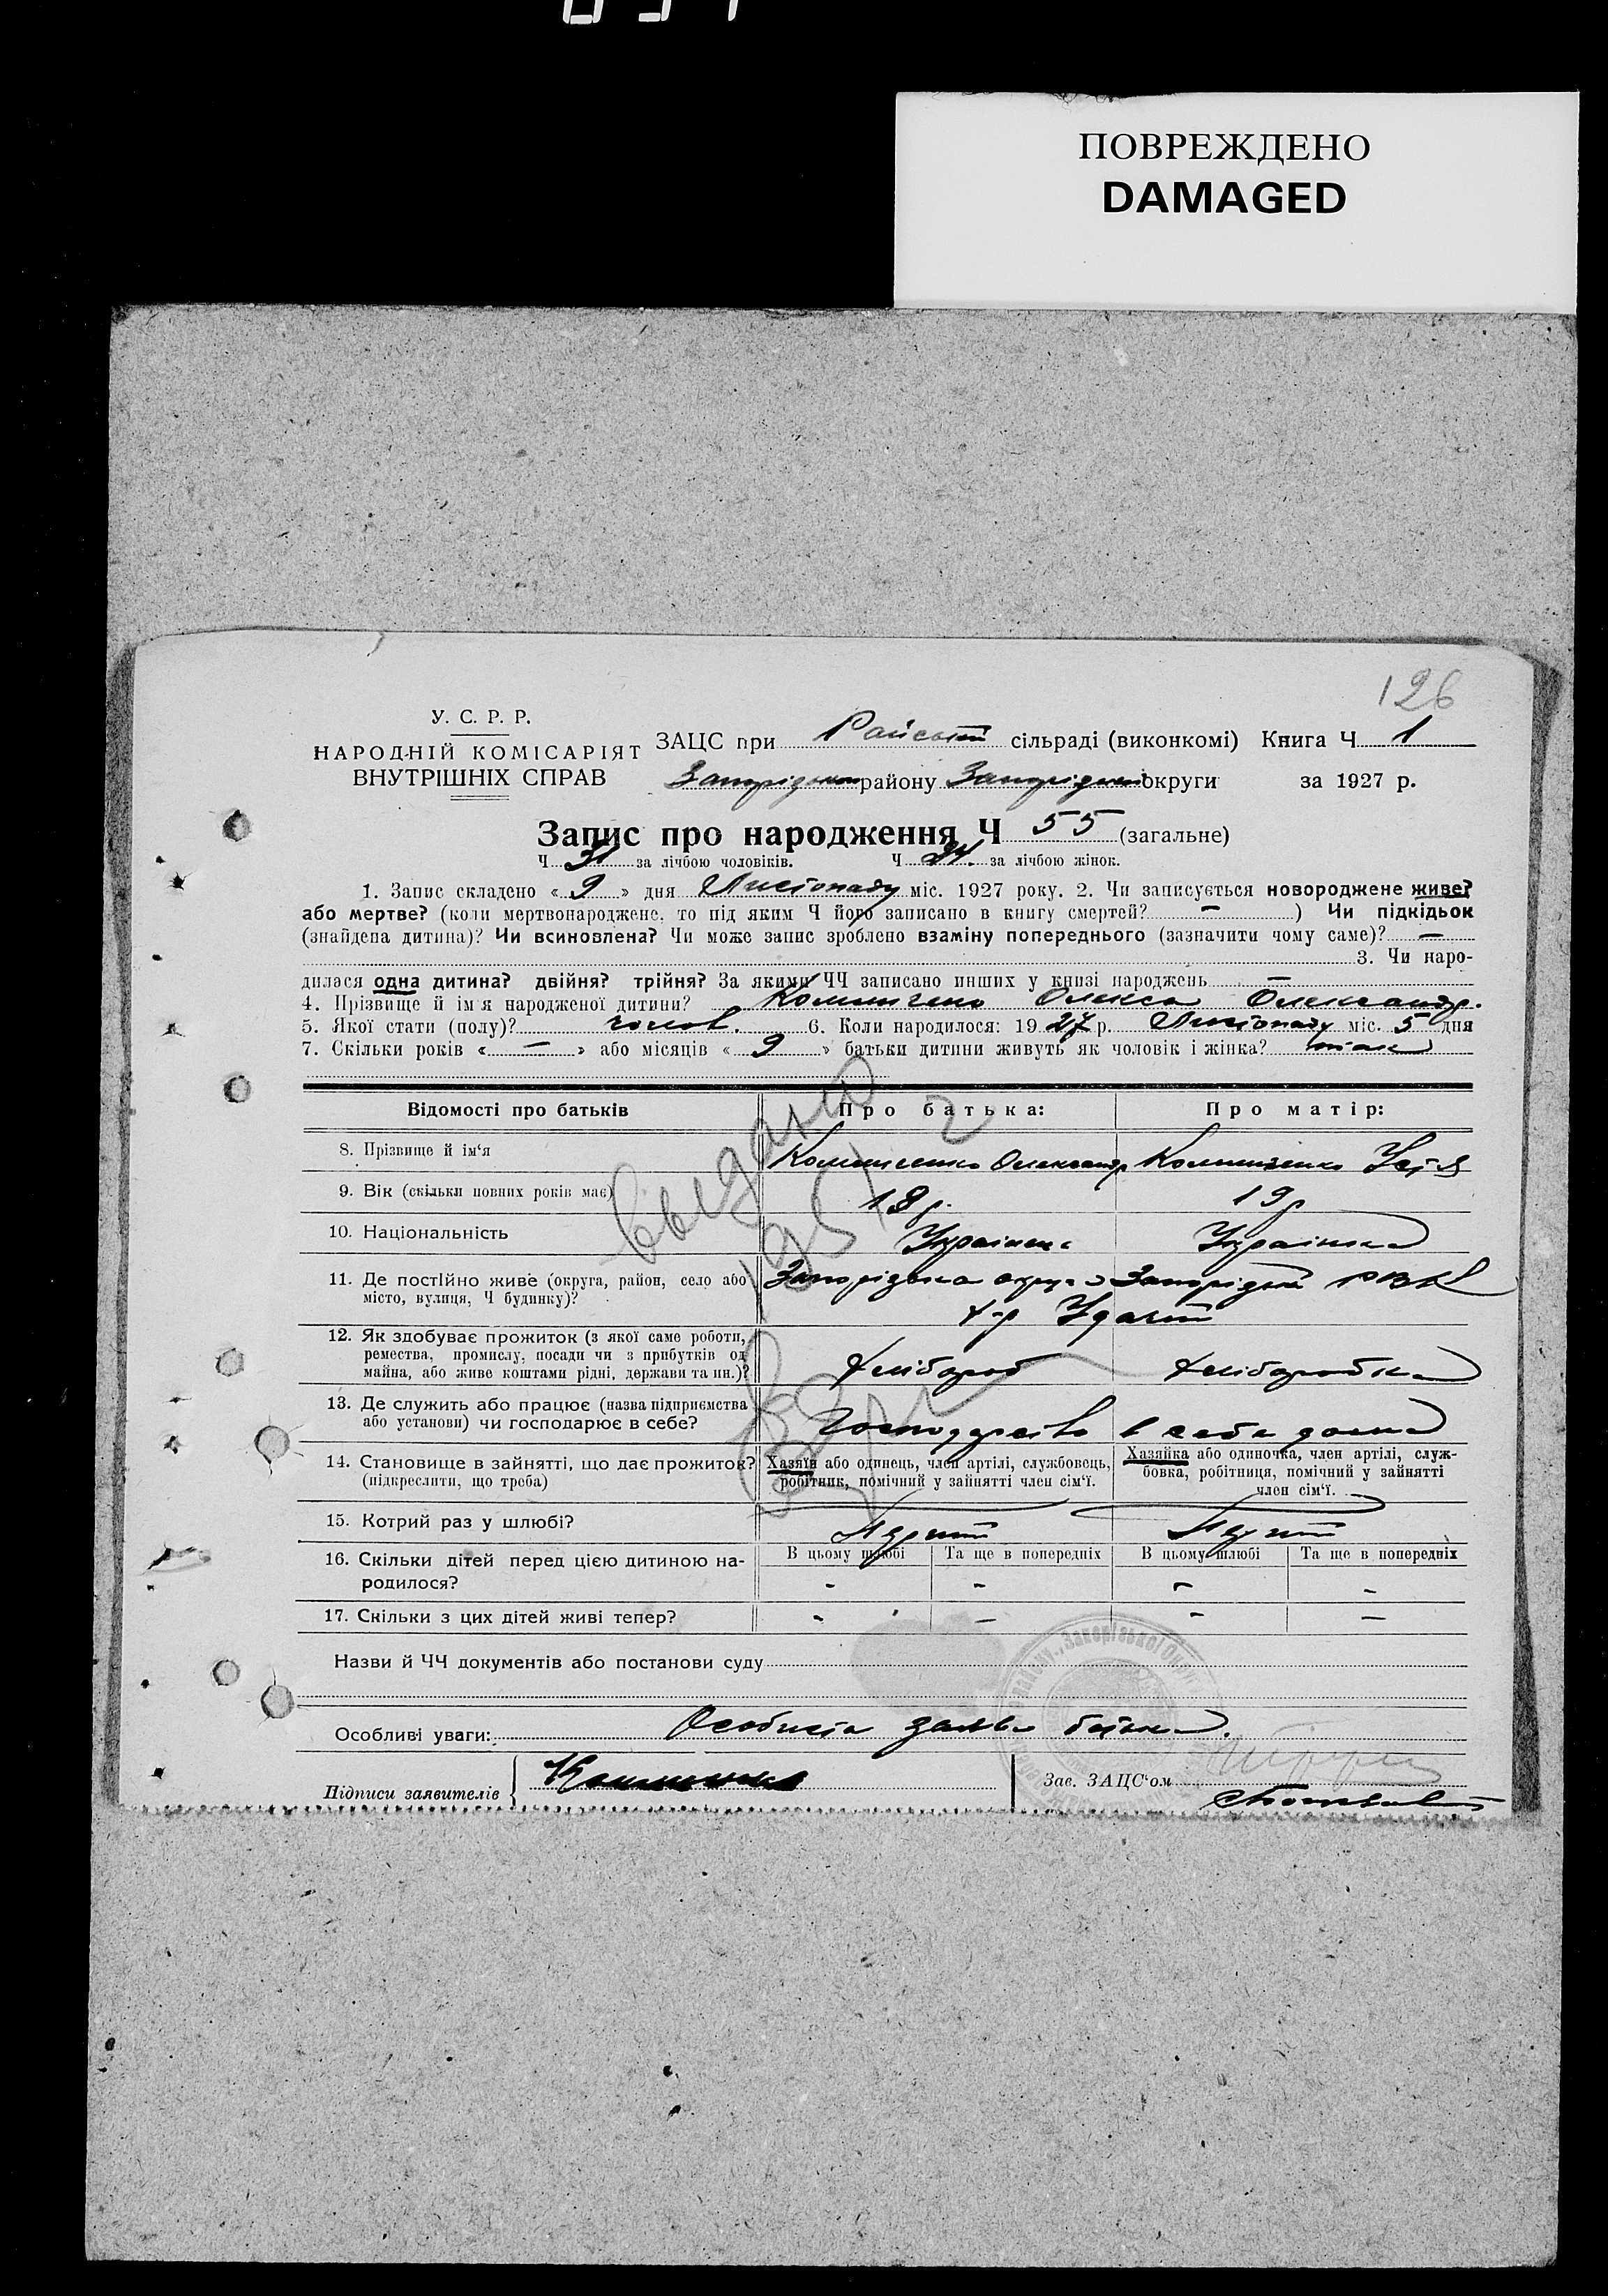 ПОВРЕЖДЕНО
DAMAGED
126
У. С. Р. Р.
НАРОДНІЙ КОМІСАРІЯТ
ВНУТРІШНІХ СПРАВ
ЗАЦС при Райській сільраді (виконкомі) Книга Ч 1
району округи за 1927 р.
Запис про народження Ч 55 (загальне)
Ч 31 за лічбою чоловіків. Ч 24. за лічбою жінок.
1. Запис складено « 9 » дня Листопаду міс. 1927 року. 2. Чи записується новороджене живе?
або мертве? (коли мертвонароджене, то під яким Ч його записано в книгу смертей? — ) Чи підкідьок
(знайдена дитина)? Чи всиновлена? Чи може запис зроблено взаміну попереднього (зазначити чому саме)? —
3. Чи наро-
дилася одна дитина? двійня? трійня? За якими ЧЧ записано инших у книзі народжень —
4. Прізвище й ім'я народженої дитини? Олекса Олександр.
5. Якої стати (полу)? чолов. 6. Коли народилося: 19 27 р. Листопаду міс. 5 дня
7. Скільки років « — » або місяців « 9 » батьки дитини живуть як чоловік і жінка? так
Відомості про батьків
Про батька:
Про матір:
8. Прізвище й ім'я Олександр
9. Вік (скільки повних років має) 18 р. 19 р
10. Національність Українець Українка
11. Де постійно живе (округа, район, село або
місто, вулиця, Ч будинку)?
Запорізька округа Запорізький РВК
х-р Удачний
12. Як здобуває прожиток (з якої саме роботи,
ремества, промислу, посади чи з прибутків од
майна, або живе коштами рідні, держави та ин.)?
Хлібороб Хліборобка
13. Де служить або працює (назва підприємства
або установи) чи господарює в себе?
Господарство в себе дома
14. Становище в зайнятті, що дає прожиток?
(підкреслити, що треба)
Хазяїн або одинець, член артілі, службовець,
робітник, помічний у зайнятті член сім'ї.
Хазяйка або одиночка, член артілі, служ-
бовка, робітниця, помічний у зайнятті
член сім'ї.
15. Котрий раз у шлюбі? Перший Перший
16. Скільки дітей перед цією дитиною на-
родилося?
В цьому шлюбі Та ще в попередніх В цьому шлюбі Та ще в попередніх
- - - -
17. Скільки з цих дітей живі тепер? - - - -
Назви й ЧЧ документів або постанови суду
Особливі уваги: Особиста заява батька.
Підписи заявителів
Зав. ЗАЦС'ом
выдано